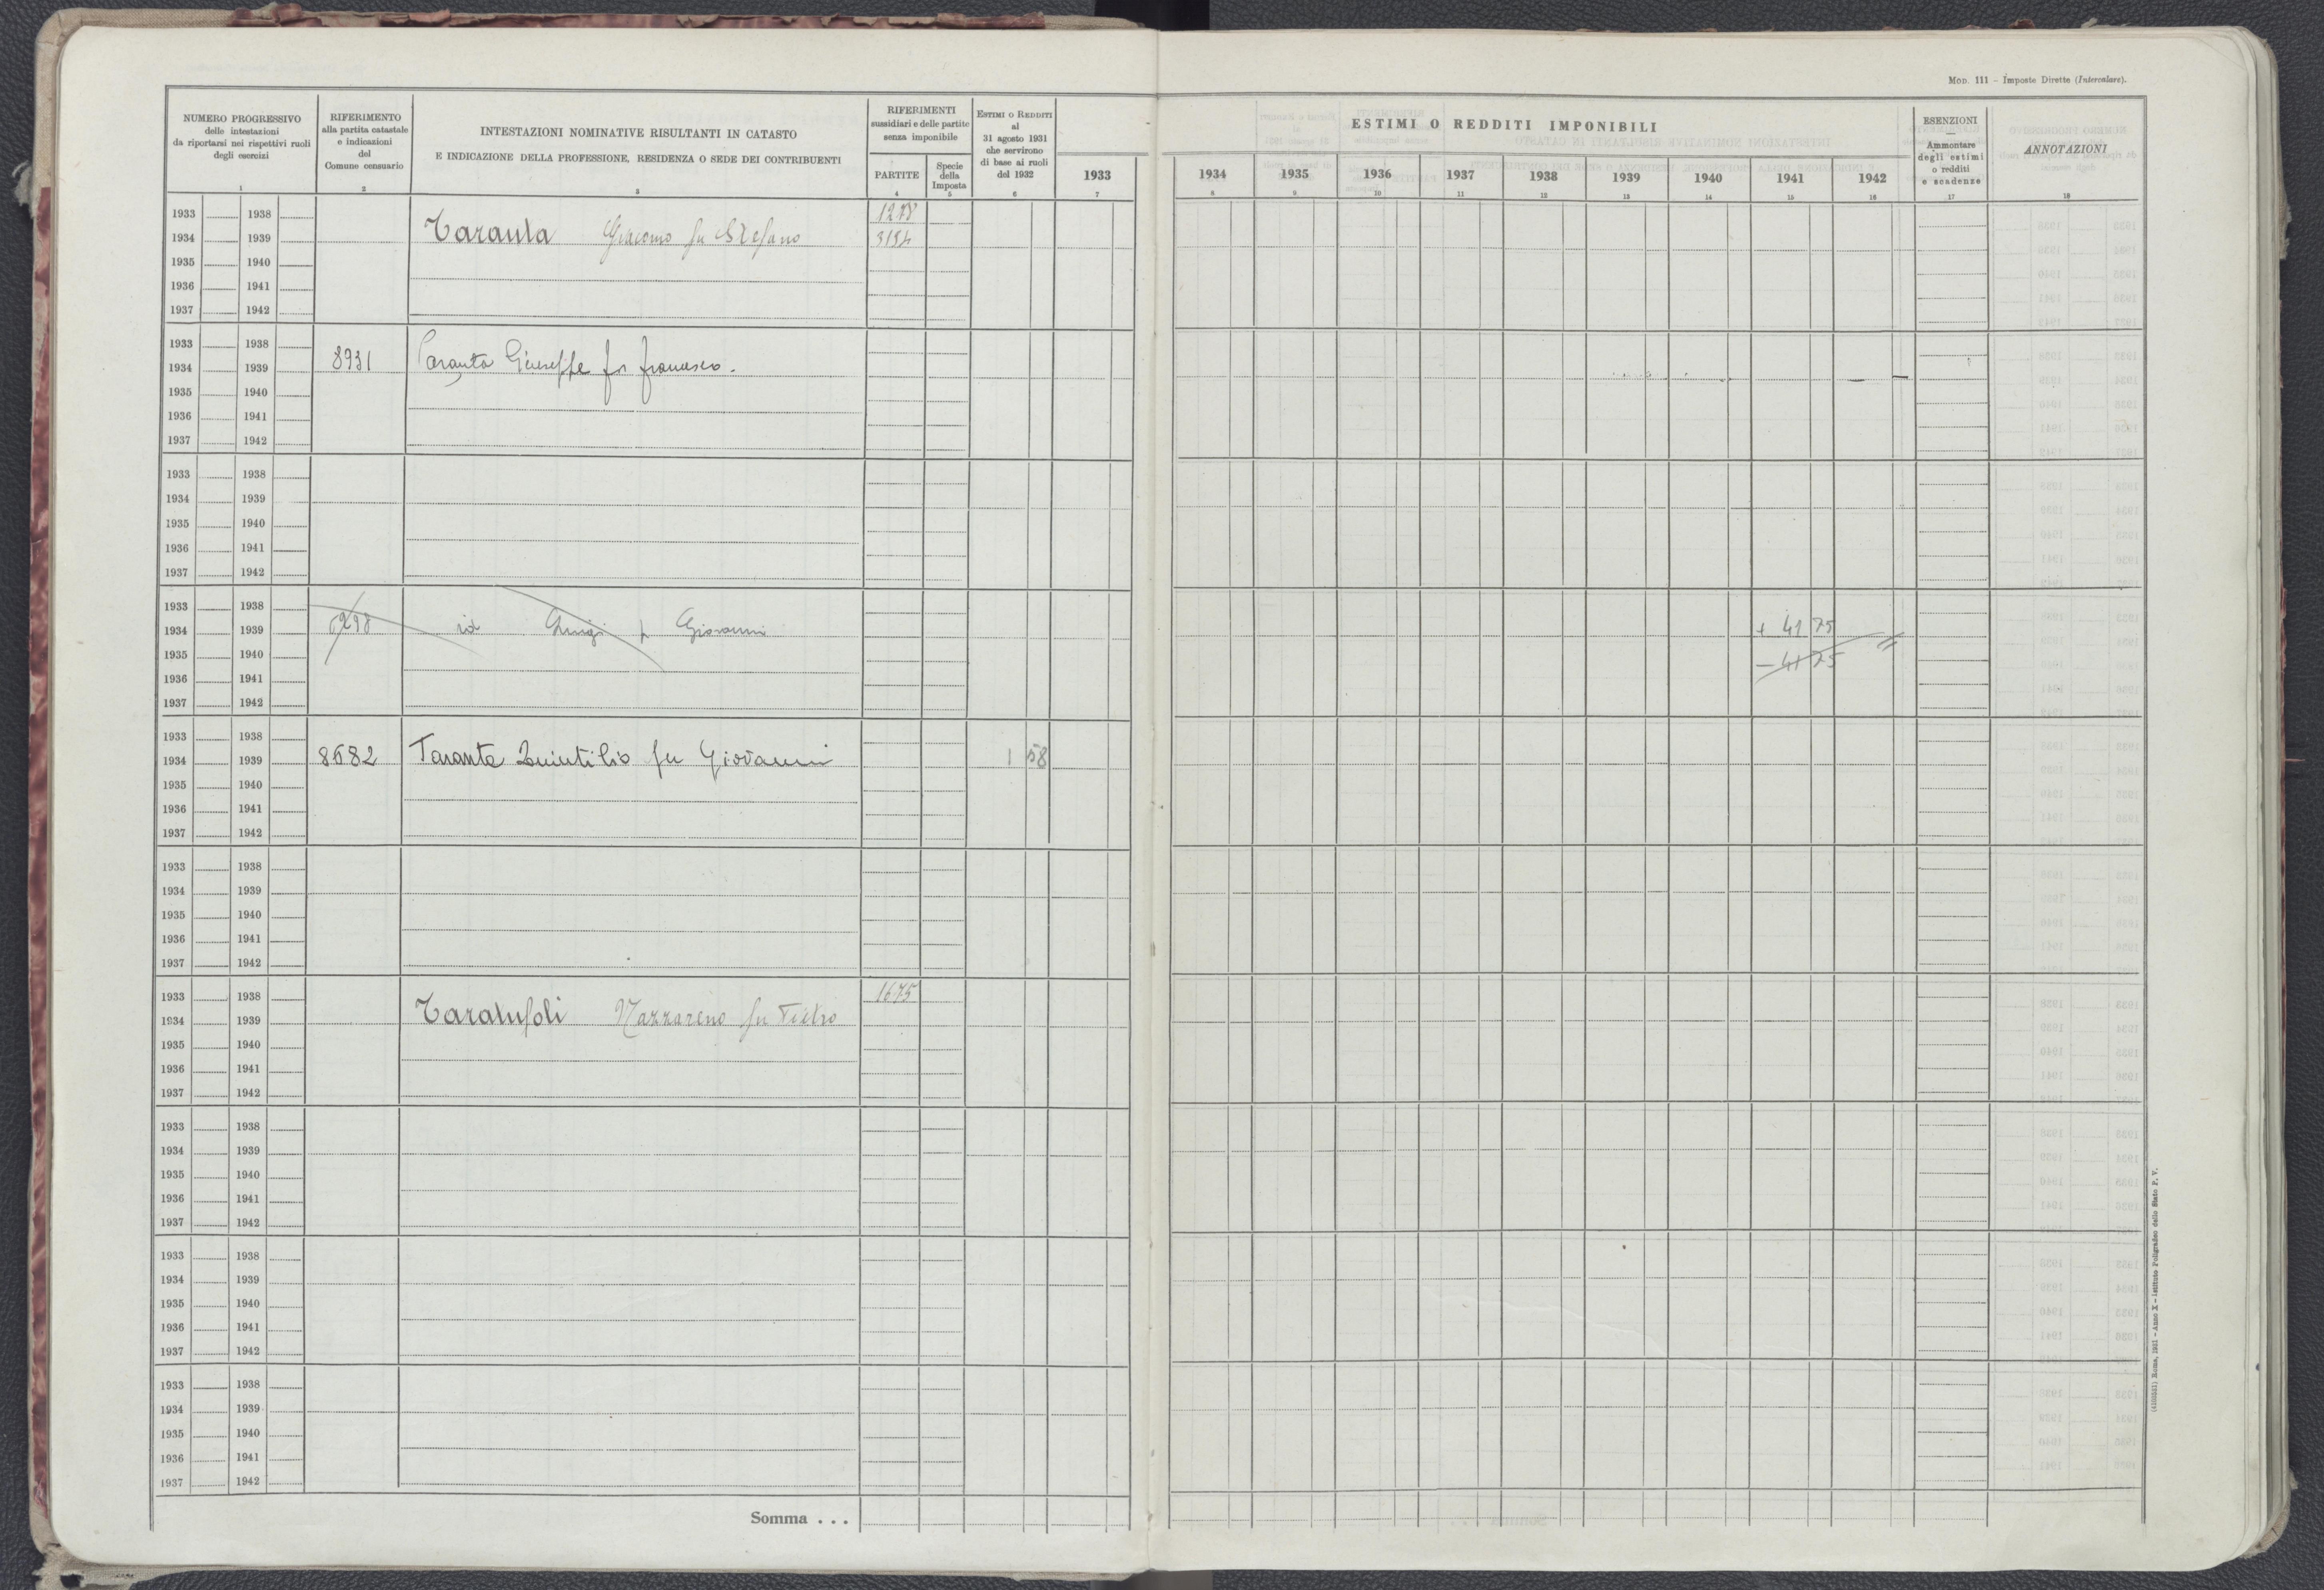 MOD. 111 - Imposte Dirette (Intercalare).
NUMERO PROGRESSIVO
delle intestazioni
da riportarsi nei rispettivi ruoli
degli esercizi
1
RIFERIMENTO
alla partita catastale
e indicazioni
del
Comune censuario
2
INTESTAZIONI NOMINATIVE RISULTANTI IN CATASTO
E INDICAZIONE DELLA PROFESSIONE, RESIDENZA O SEDE DEI CONTRIBUENTI
3
RIFERIMENTI
sussidiari e delle partite
senza imponibile
PARTITE
4
Specie
della
Imposta
5
ESTIMI O REDDITI
al
31 agosto 1931
che servirono
di base ai ruoli
del 1932
6
ESTIMI O REDDITI IMPONIBILI
1933 1934 1935 1936 1937 1938 1939 1940 1941 1942
7 8 9 10 11 12 13 14 15 16
ESENZIONI
—
Ammontare
degli estimi
o redditi
e scadenze
17
ANNOTAZIONI
18
1933 1938
1934 1939 Taranta Giacomo fu Stefano
1935 1940
1936 1941
1937 1942
1933 1938
1934 1939 8931 Taranta Giuseppe fu francesco.
1935 1940
1936 1941
1937 1942
1933 1938
1934 1939
1935 1940
1936 1941
1937 1942
1933 1938
1934 1939 id Luigi fu Giovanni + 41 75
1935 1940 – 41 75
1936 1941
1937 1942
1933 1938
1934 1939 8682 Taranta Quintilio fu Giovanni 1 58
1935 1940
1936 1941
1937 1942
1933 1938
1934 1939
1935 1940
1936 1941
1937 1942
1933 1938 1675
1934 1939 Taratufoli Nazzareno fu Pietro
1935 1940
1936 1941
1937 1942
1933 1938
1934 1939
1935 1940
1936 1941
1937 1942
1933 1938
1934 1939
1935 1940
1936 1941
1937 1942
1933 1938
1934 1939
1935 1940
1936 1941
1937 1942
Somma . . .
Roma, 1931 - Anno X - Istituto Poligrafico dello Stato P. V.